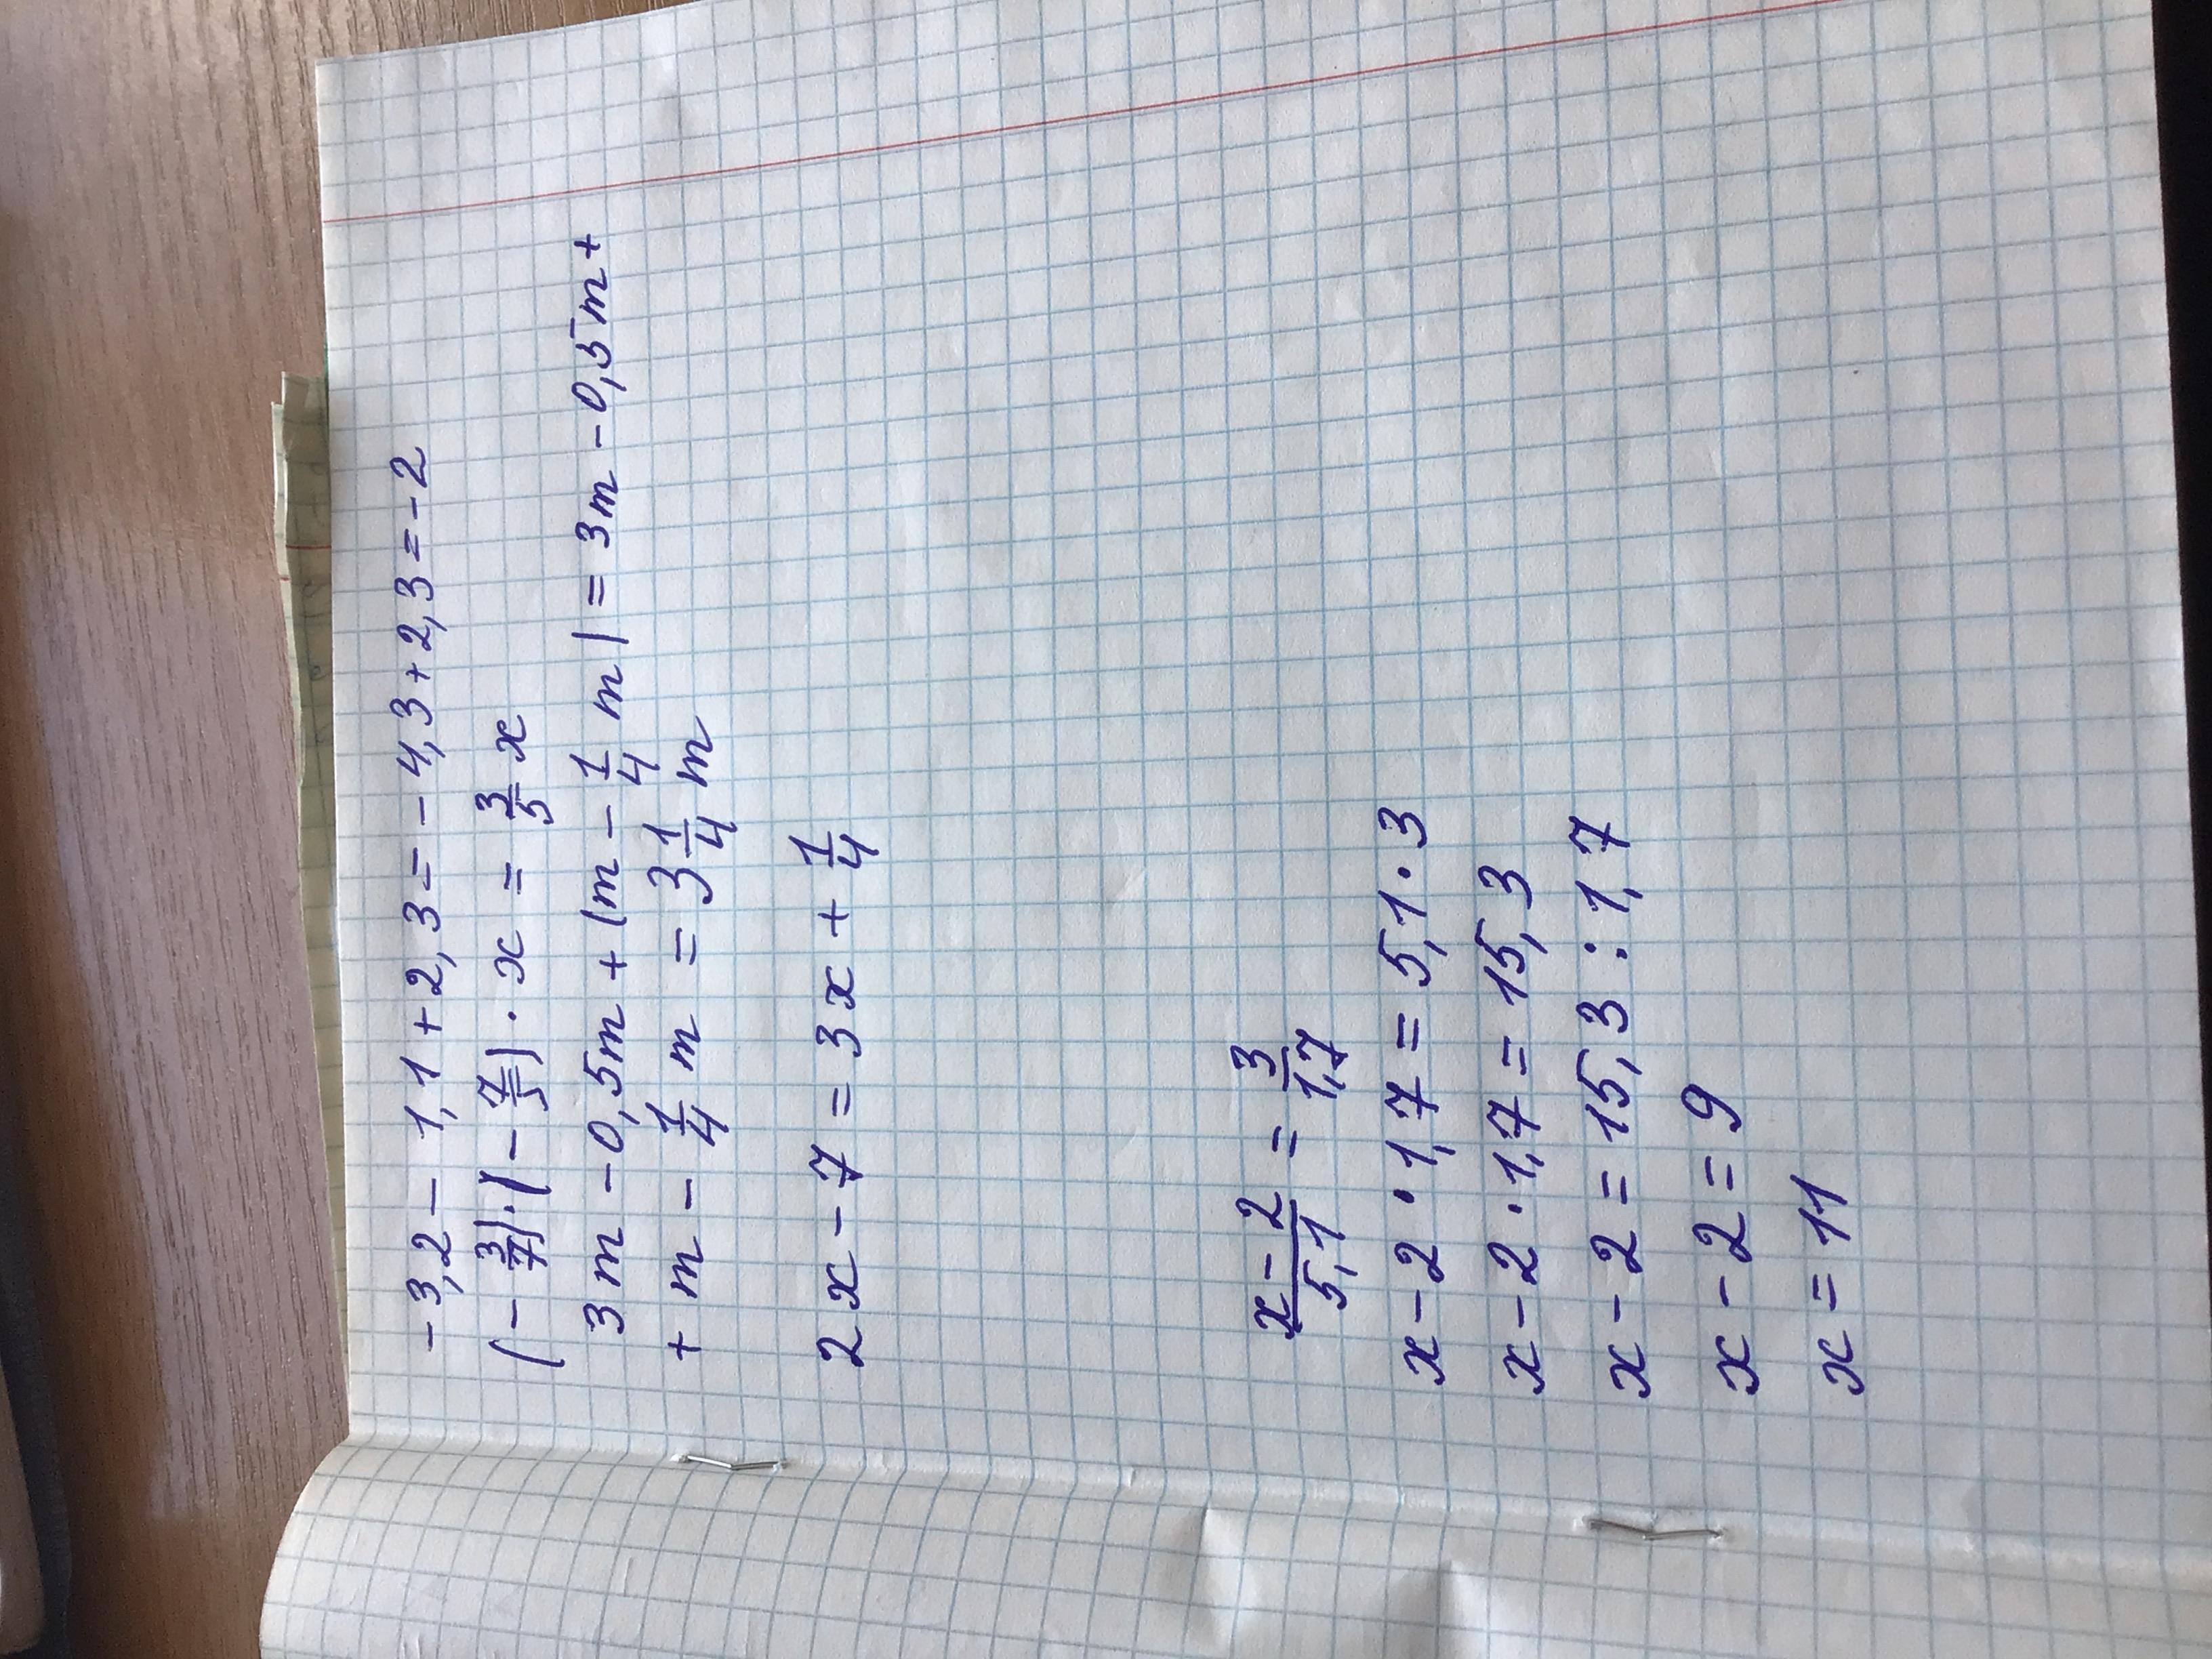 -3,2-1,1+2,3=-4,3+2,3=-2
(-3/7)·(-7/5)·x=3/5x
3m-0,5m+(m-1/4m)=3m-0,5m+
+m-1/4m=3 1/4m
2x-7=3x+1/4
x-2/5,1=3/1,7
x-2·1,7=5,1·3
x-2·1,7=15,3
x-2=15,3:1,7
x-2=9
x=11